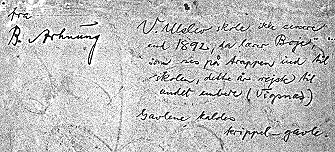 fra
B. Arhnung
V. Ulslev skole, ikke senere
end 1892, da lærer Boget,
som ses på trappen ind til
skolen, dette år rejste til
andet embede (Vigsnæs)
Gavlene kaldes
trippel-gavle.